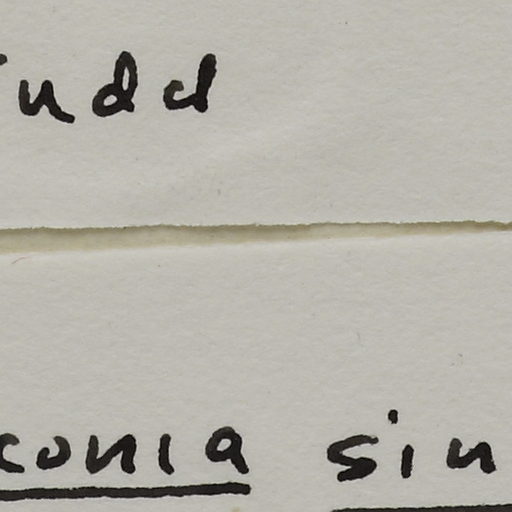 udd
conia sin